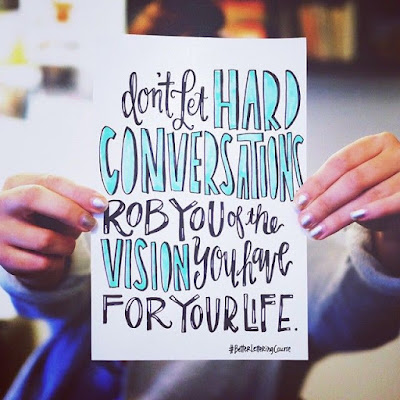 don't Let HARD
CONVERSATIONS
ROB YOU of the
VISION You have
FOR YOUR LIFE.
#BetterLetteringCourse